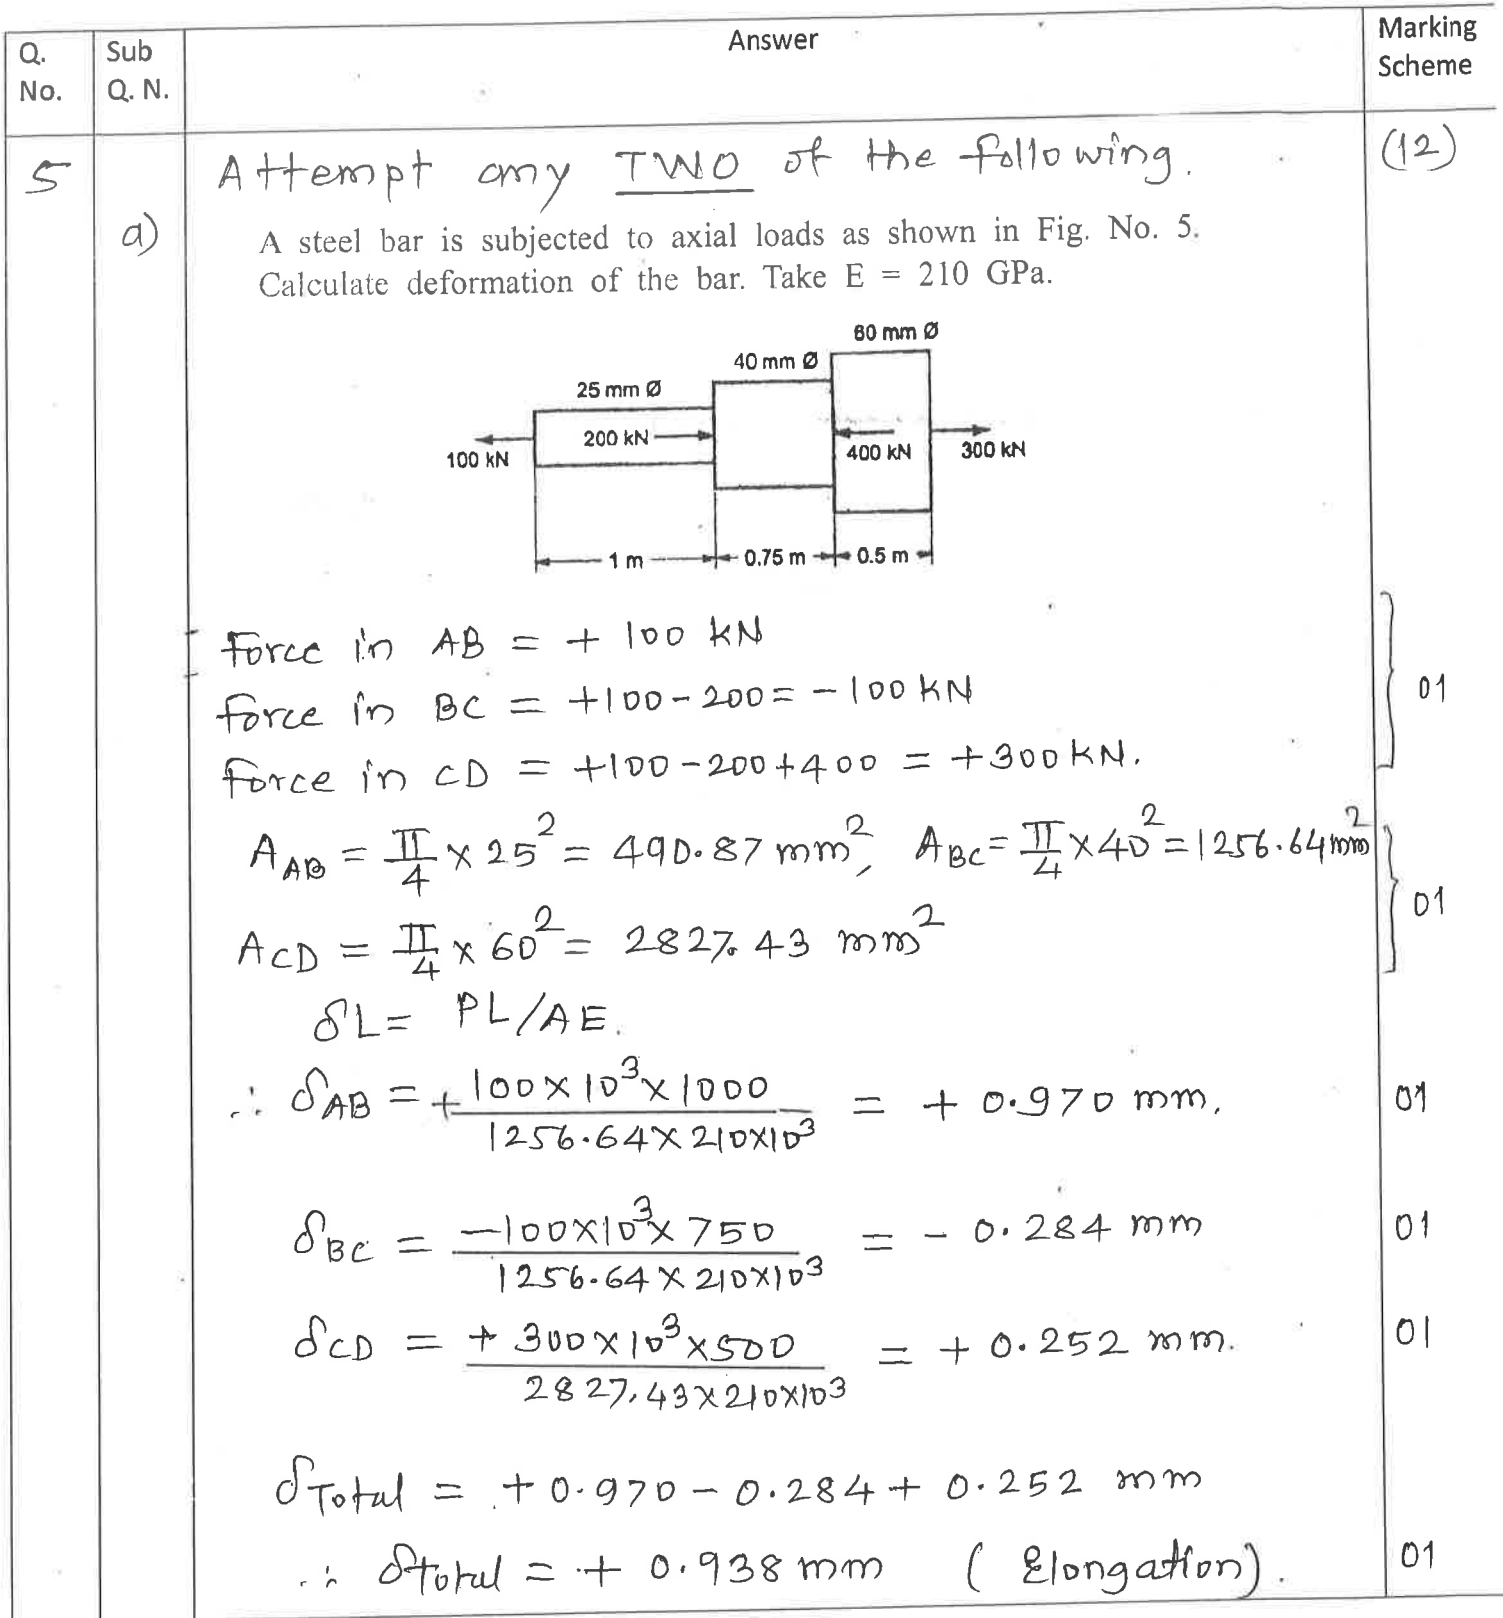 Q. No.
Sub Q. N.
Answer
Marking Scheme
5
Attempt any TWO of the following.
(12)
a)
A steel bar is subjected to axial loads as shown in Fig. No. 5.
Calculate deformation of the bar. Take E = 210 GPa.
60 mm Ø
40 mm Ø
25 mm Ø
200 kN
100 kN
400 kN
300 kN
1 m
0.75 m
0.5 m
Force in AB = + 100 kN
Force in BC = +100 - 200 = - 100 kN
01
Force in CD = +100 - 200 + 400 = +300 kN.
A_AB = π/4 × 25² = 490.87 mm², A_BC = π/4 × 40² = 1256.64 mm²
01
A_CD = π/4 × 60² = 2827.43 mm²
δL = PL/AE.
∴ δ_AB = + 100 × 10³ × 1000 / 1256.64 × 210×10³ = + 0.970 mm.
01
δ_BC = -100×10³ × 750 / 1256.64 × 210×10³ = - 0.284 mm
01
δ_CD = + 300 × 10³ × 500 / 2827.43 × 210×10³ = + 0.252 mm.
01
δ_Total = + 0.970 - 0.284 + 0.252 mm
∴ δ_Total = + 0.938 mm ( Elongation).
01